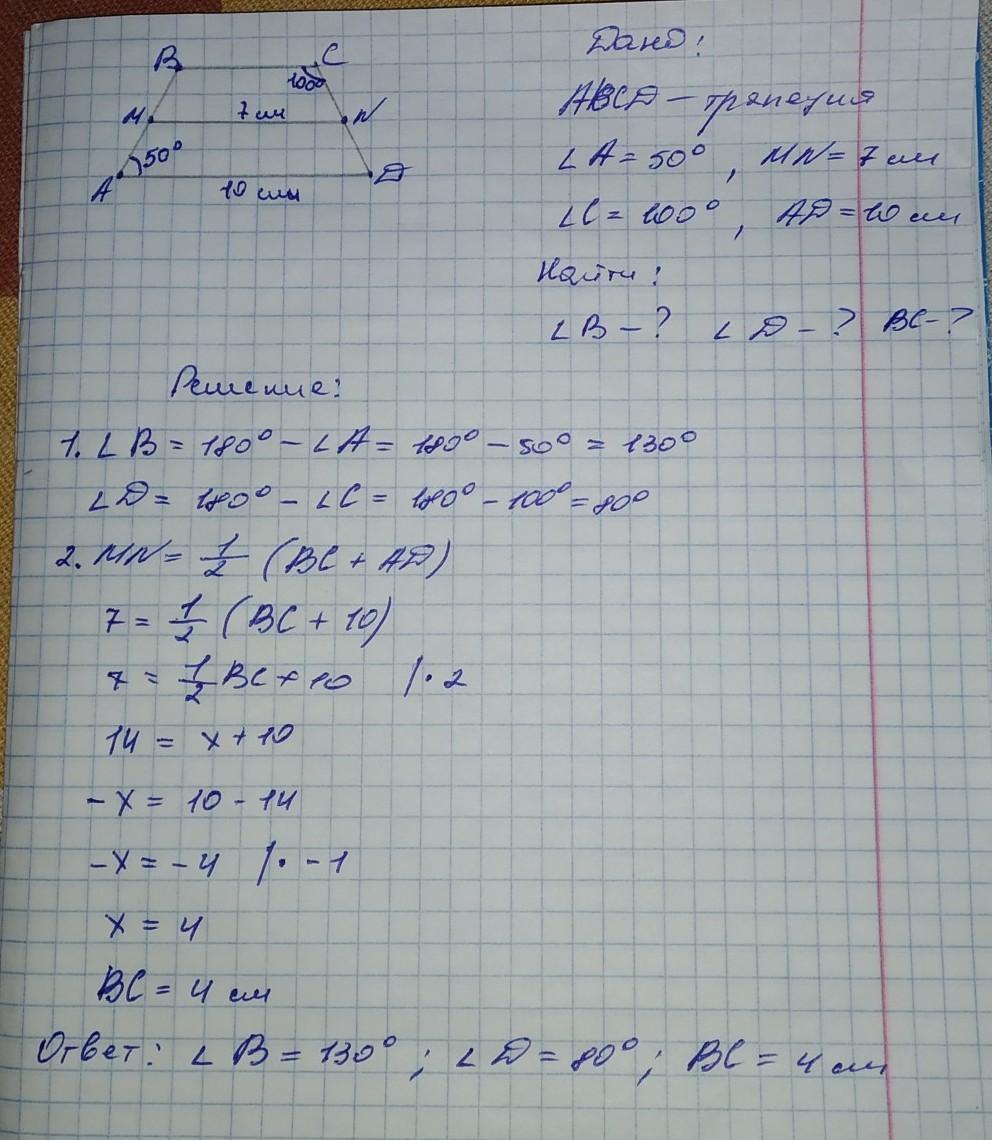 B C
100°
M 7 см N
50°
A 10 см D
Дано:
ABCD – трапеция
∠A = 50°, MN = 7 см
∠C = 100°, AD = 10 см
Найти:
∠B – ? ∠D – ? BC – ?
Решение:
1. ∠B = 180° – ∠A = 180° – 50° = 130°
∠D = 180° – ∠C = 180° – 100° = 80°
2. MN = 1/2 (BC + AD)
7 = 1/2 (BC + 10)
7 = 1/2 BC + 10 /· 2
14 = x + 10
–x = 10 – 14
–x = –4 /· –1
x = 4
BC = 4 см
Ответ: ∠B = 130°; ∠D = 80°; BC = 4 см